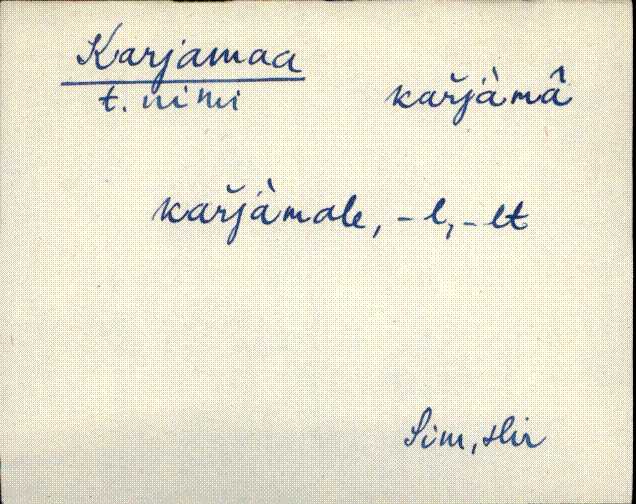 Karjamaa
t. nimi kařjàmâ
kařjàmale, -l, -lt
Sim,